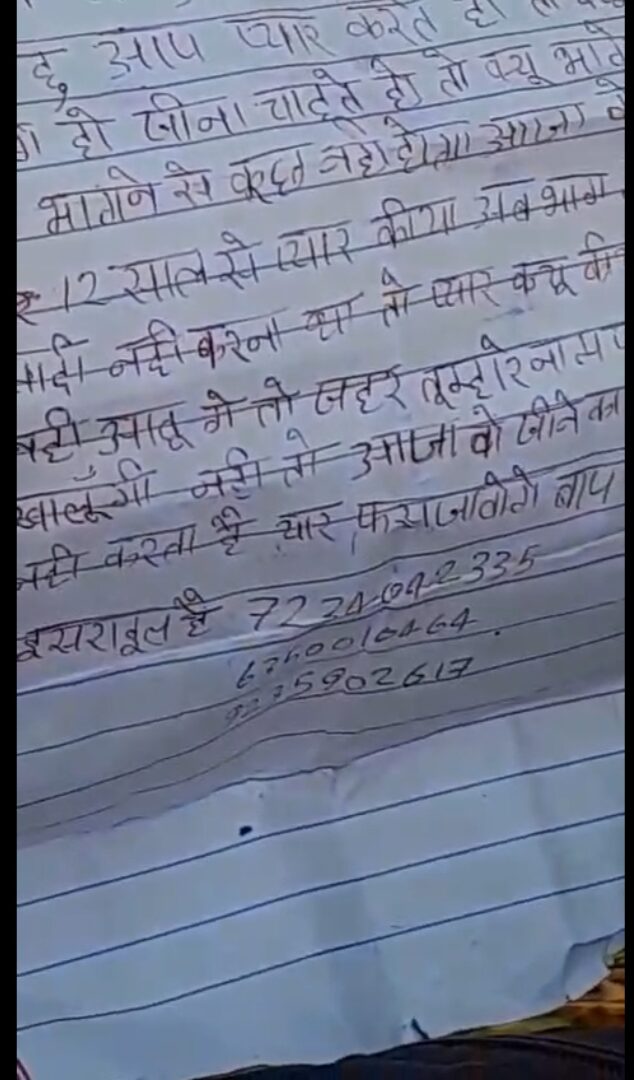 हु आप प्यार करते हो
हो जीना चाहते हो तो क्यू भागे
भागने से कूछ नही होगा आजा
12 साल से प्यार कीया अब भाग
नही करना था तो प्यार क्यू
नही आवू गे तो जहर तूम्हारे नाम
खालूँगी नही तो आजावो जीने का
नही करता है यार फसजावोगे बाप
इसराइल है 7224042335
5902617